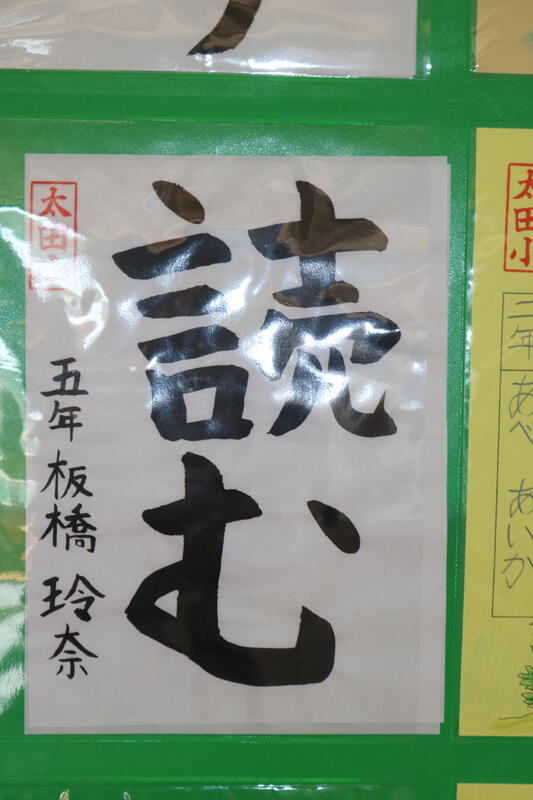 読む
太田小
五年 板橋 玲奈
太田小
二年 あべ あいか